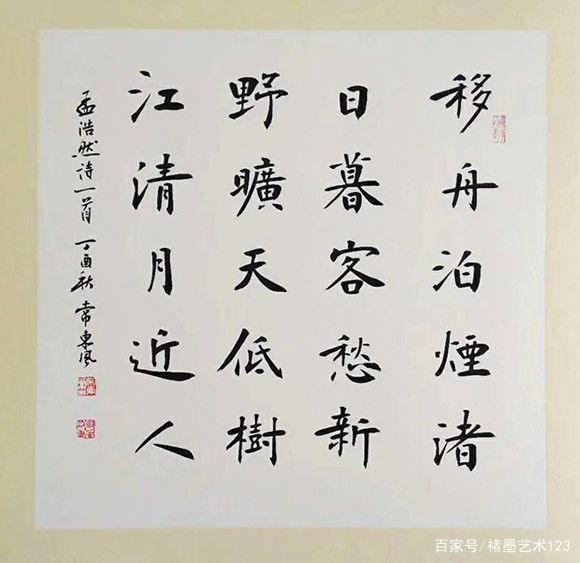 移舟泊煙渚
日暮客愁新
野曠天低樹
江清月近人
孟浩然诗一首 丁酉秋 常東风
百家号/楮墨艺术123